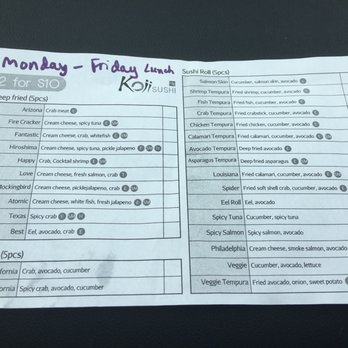 Monday - Friday Lunch
2 for $10
Koji SUSHI
eep fried (5pcs)
Arizona Crab meat
Fire Cracker Cream cheese, spicy tuna
Fantastic Cream cheese, crab, whitefish
Hiroshima Cream cheese, spicy tuna, pickle jalapeno
Happy Crab, Cocktail shrimp
Love Cream cheese, fresh salmon, crab
Mockingbird Cream cheese, picklejalapeno, crab
Atomic Cream cheese, white fish, fresh jalapeno
Texas Spicy crab
Best Eel, avocado, crab
(5pcs)
fornia Crab, avocado, cucumber
fornia Spicy crab, avocado, cucumber
Sushi Roll (5pcs)
Salmon Skin Cucumber, salmon skin, avocado
Shrimp Tempura Fried shrimp, cucumber, avocado
Fish Tempura Fried fish, cucumber, avocado
Crab Tempura Fried crabstick, cucumber, avocado
Chicken Tempura Fried chicken, cucumber, avocado
Calamari Tempura Fried calamari, cucumber, avocado
Avocado Tempura Deep fried avocado
Asparagus Tempura Deep fried asparagus
Louisiana Fried calamari, cucumber, avocado
Spider Fried soft shell crab, cucumber, avocado
Eel Roll Eel, avocado
Spicy Tuna Cucumber, spicy tuna
Spicy Salmon Spicy salmon, avocado
Philadelphia Cream cheese, smoke salmon, avocado
Veggie Cucumber, avocado, lettuce
Veggie Tempura Fried avocado, onion, sweet potato